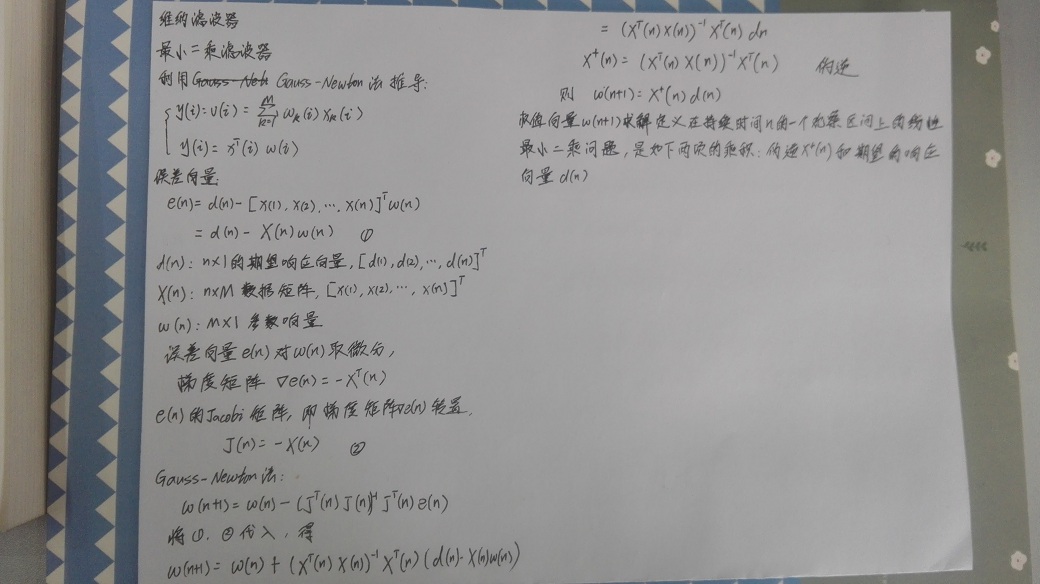 维纳滤波器
最小二乘滤波器
利用Gauss-Newton法推导:
y(i)=v(i)=∑_{k=1}^{M} w_k(i) x_k(i)
y(i)=x^T(i) w(i)
误差向量:
e(n)= d(n)-[x(1), x(2), …, x(n)]^T w(n)
= d(n)- X(n)w(n) ①
d(n): n×1的期望响应向量, [d(1), d(2), …, d(n)]^T
X(n): n×M 数据矩阵, [x(1), x(2), …, x(n)]^T
w(n): M×1 参数向量
误差向量e(n)对w(n)取微分,
梯度矩阵 ∇e(n)=-X^T(n)
e(n)的Jacobi矩阵, 即梯度矩阵∇e(n)转置.
J(n)=-X(n) ②
Gauss-Newton法:
w(n+1)= w(n)-(J^T(n)J(n))^{-1}J^T(n)e(n)
将①, ②代入, 得
w(n+1)= w(n)+(X^T(n)X(n))^{-1}X^T(n)(d(n)-X(n)w(n))
= (X^T(n)X(n))^{-1}X^T(n) dn
X^+(n)= (X^T(n)X(n))^{-1}X^T(n) 伪逆
则 w(n+1)=X^+(n)d(n)
权值向量w(n+1)求解定义在持续时间n的一个观察区间上的线性
最小二乘问题, 是如下两项的乘积: 伪逆X^+(n)和期望的响应
向量d(n)